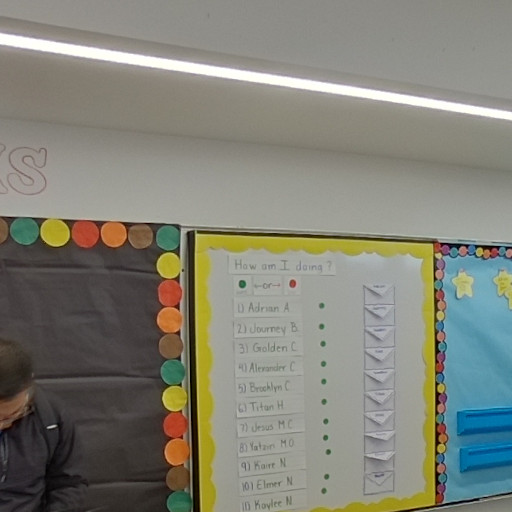 KS
How am I doing?
←or→
1) Adrian A.
2) Journey B.
3) Golden C.
4) Alexander C.
5) Brooklyn C.
6) Titan H.
7) Jesus M.C.
8) Yatziri M.O
9) Kaire N.
10) Elmer N.
11) Kaylee N.